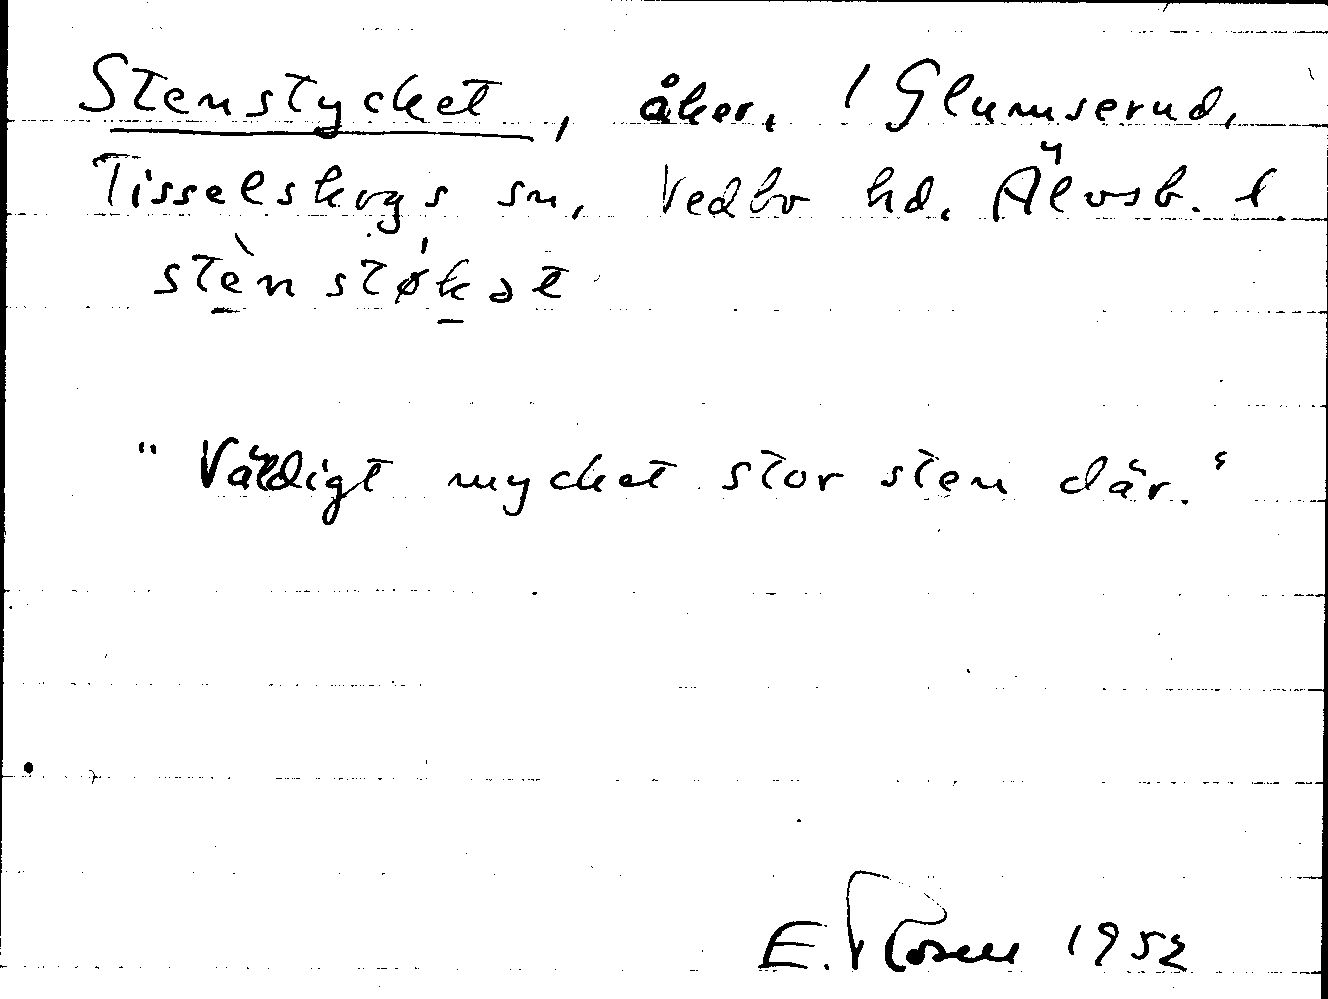 Stenstycket, åker, / Glumserud,
Tisselskogs sn, Vedbo hd. Älvsb. l.
stèn støkət
"Väldigt mycket stor sten där."
E. Rosell 1952